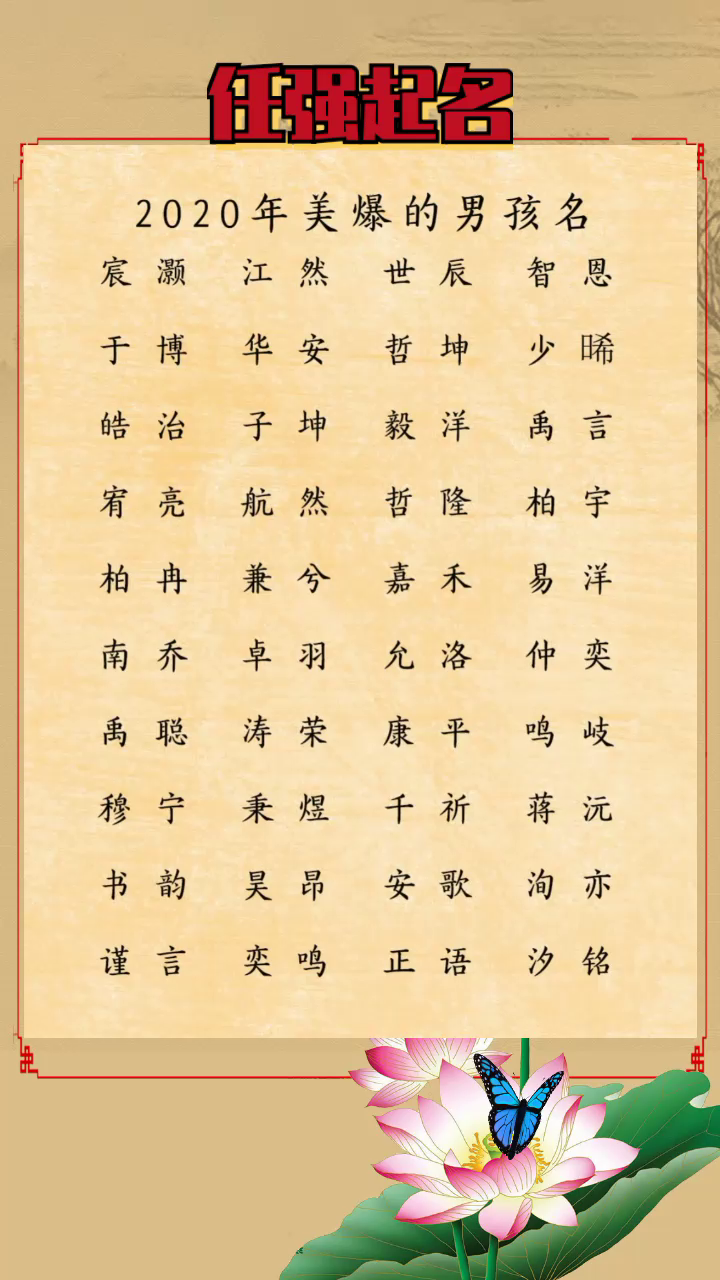 任强起名
2020年美爆的男孩名
宸灏 江然 世辰 智恩
于博 华安 哲坤 少晞
皓治 子坤 毅洋 禹言
宥亮 航然 哲隆 柏宇
柏冉 兼兮 嘉禾 易洋
南乔 卓羽 允洛 仲奕
禹聪 涛荣 康平 鸣岐
穆宁 秉煜 千祈 蒋沅
书韵 昊昂 安歌 洵亦
谨言 奕鸣 正语 汐铭